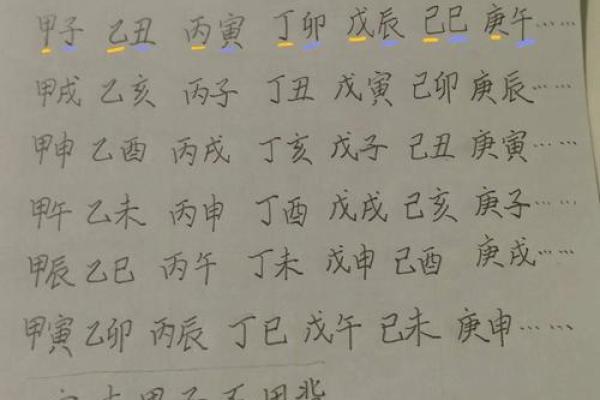 甲子 乙丑 丙寅 丁卯 戊辰 己巳 庚午……
甲戌 乙亥 丙子 丁丑 戊寅 己卯 庚辰……
甲申 乙酉 丙戌 丁亥 戊子 己丑 庚寅……
甲午 乙未 丙申 丁酉 戊戌 己亥 庚子……
甲辰 乙巳 丙午 丁未 戊申 己酉 庚戌……
甲寅 乙卯 丙辰 丁巳 戊午 己未 庚申……
甲子不用背